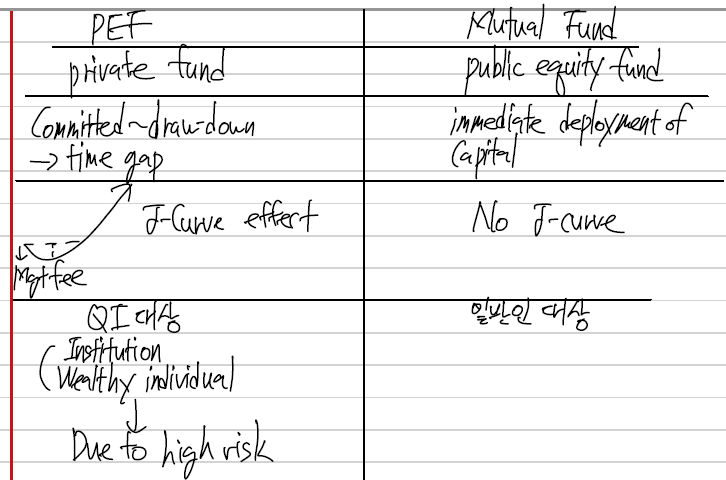 PEF
Mutual Fund
private fund
public equity fund
Committed~draw-down
→ time gap
immediate deployment of
Capital
J-Curve effect
Mgt fee
No J-curve
QI 대상
Institution
Wealthy individual
Due to high risk
일반인 대상